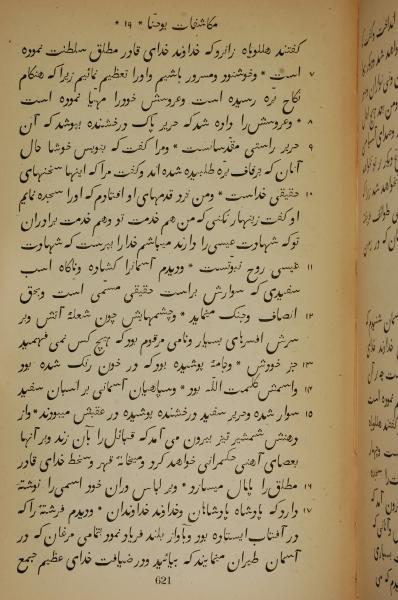 مکاشفات یوحنّا * ۱۹ *
گفتند هللویاه زانرو که خداوند خدای قادر مطلق سلطنت نموده
۷ است * وخوشنود ومسرور باشیم واورا تعظیم نمائیم زیرا که هنگام
نکاح برّه رسیده است وعروسش خودرا مهیّا نموده است
۸ * وعروسش‌را داده شد که حریر پاک درخشنده بپوشد که آن
۹ حریر راستی مقدّسانست * ومرا گفت که بنویس خوشا حال
آنان که بزفاف برّه طلبیده شده اند وگفت مرا که اینها سخنهای
۱۰ حقیقی خداست * ومن نزد قدمهای او افتادم که اورا سجده نمایم
او گفت زینهار نکنی که من هم خدمت تو وهم خدمت برادران
توکه شهادت عیسی را دارند میباشم خدارا بپرست که شهادت
۱۱ عیسی روح نبوّتست * ودیدم آسمانرا کشاده وناگاه اسب
سفیدی که سوارش براست حقیقی مسمّی است وبحق
۱۲ انصاف وجنگ مینماید * وچشمهایش چون شعلهٔ آتش وبر
سرش افسرهای بسیار ونامی مرقوم بود که هیچ کس نمی فهمید
۱۳ جز خودش * وجامهٔ پوشیده بود که در خون رنگ شده بود
۱۴ واسمش کلمت اللّه بود * وسپاهیان آسمانی بر اسبان سفید
۱۵ سوار شده وحریر سفید درخشنده پوشیده در عقبش میبودند * واز
دهنش شمشیر تیز بیرون می آمد که قبائل‌را بآن زند واو آنها
بعصای آهنی حکمرانی خواهد کرد ومیخانهٔ قهر وسخط خدای قادر
۱۶ مطلق‌را پامال میسازد * وبر لباس وران خود اسمی‌را نوشته
۱۷ دارد که پادشاه پادشاهان وخداوند خداوندان * ودیدم فرشتهٔ را که
در آفتاب ایستاده بود وبآواز بلند فریاد نمود بتمامی مرغان که در
آسمان طیران مینمایند که بیائید ودر ضیافت خدای عظیم جمع
621